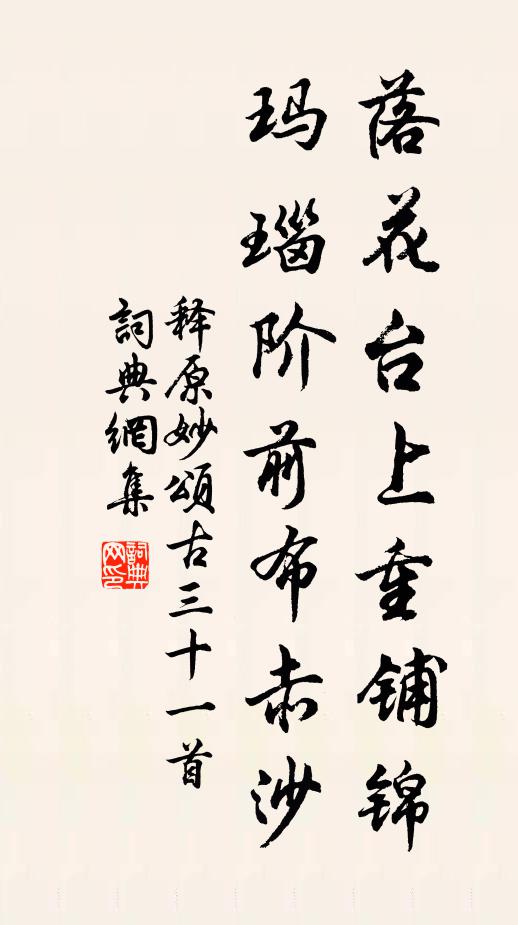 落花台上重铺锦
玛瑙阶前布赤沙
释原妙颂古三十一首
詞典網集
詞典网印